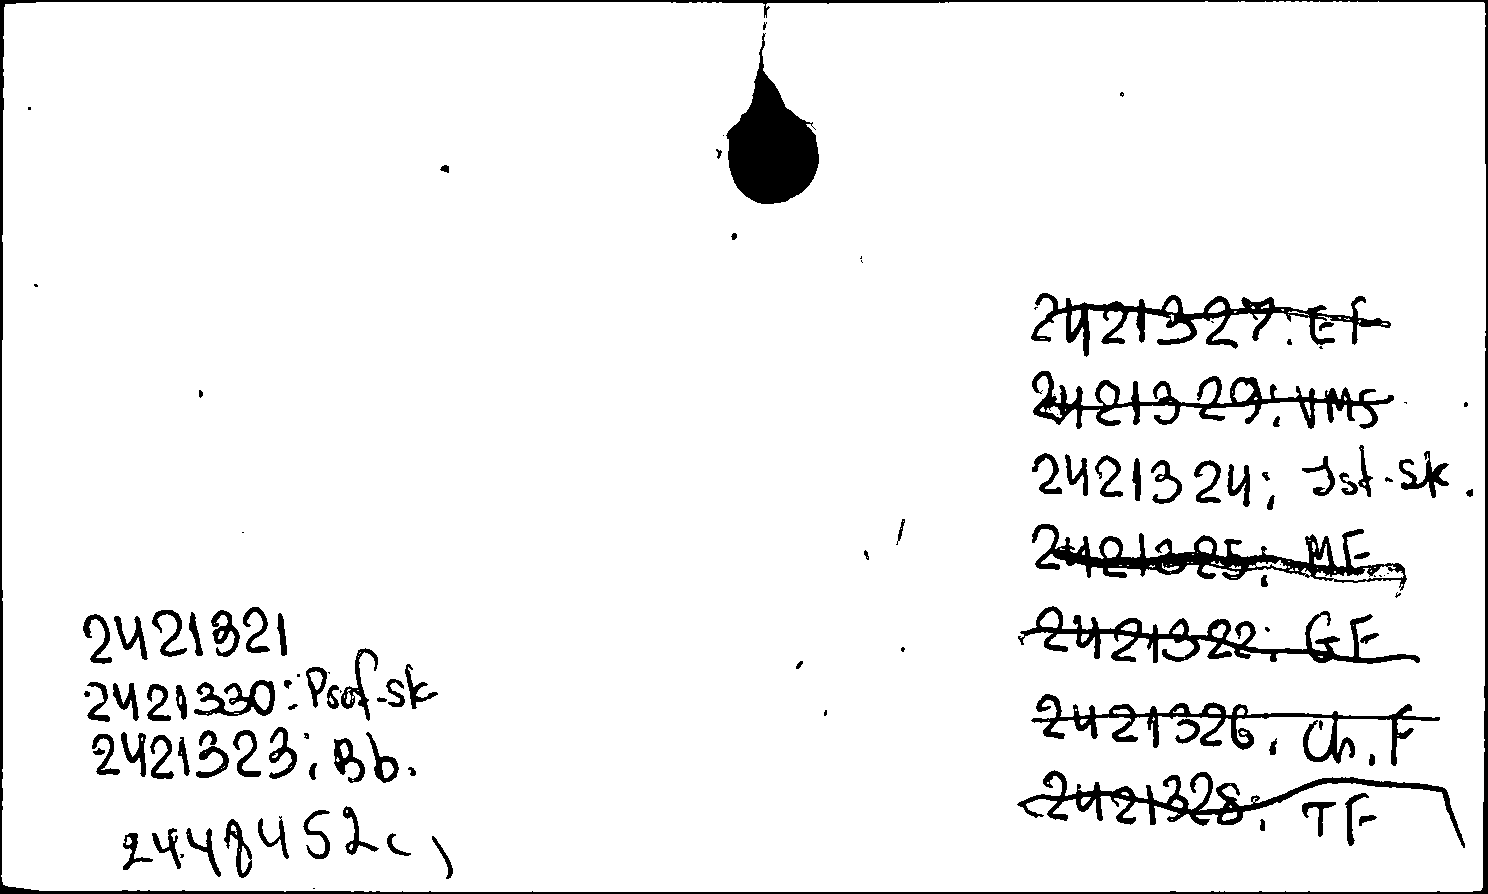 2421327: EF
2421329: VMS
2421324: Ist-sk.
2421325: MF
2421322: GF
2421326: Ch.F
2421328: TF
2421321
2421330: Prof-sk
2421323: Bb.
2448452